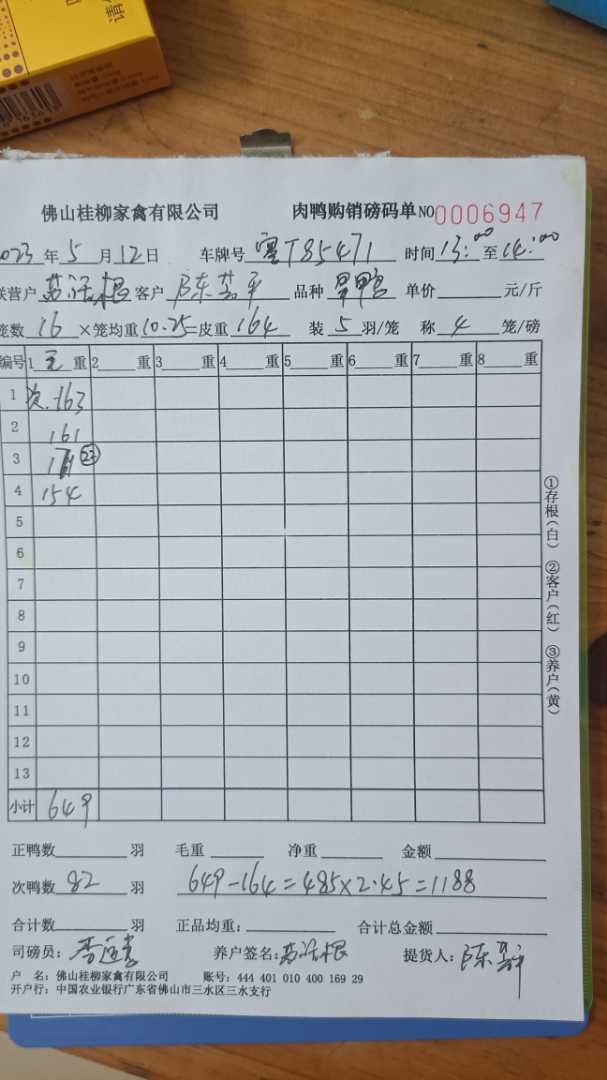 佛山桂柳家禽有限公司 肉鸭购销磅码单 NO 0006947
2023 年 5 月 12 日 车牌号 粤T85471 时间 13:00 至 14:00
联营户 客户 陈 品种 单价 元/斤
笼数 16 ×笼均重 10.25 =皮重 164 装 5 羽/笼 称 4 笼/磅
编号 1 毛 重 2 重 3 重 4 重 5 重 6 重 7 重 8 重
1 次.163
2 161
3 22
4 154
5
6
7
8
9
10
11
12
13
小计 649
①存根(白) ②客户(红) ③养户(黄)
正鸭数 羽 毛重 净重 金额
次鸭数 82 羽 649-164=485×2.45=1188
合计数 羽 正品均重: 合计总金额
司磅员: 养户签名: 提货人: 陈
户 名: 佛山桂柳家禽有限公司 账号: 444 401 010 400 169 29
开户行: 中国农业银行广东省佛山市三水区三水支行